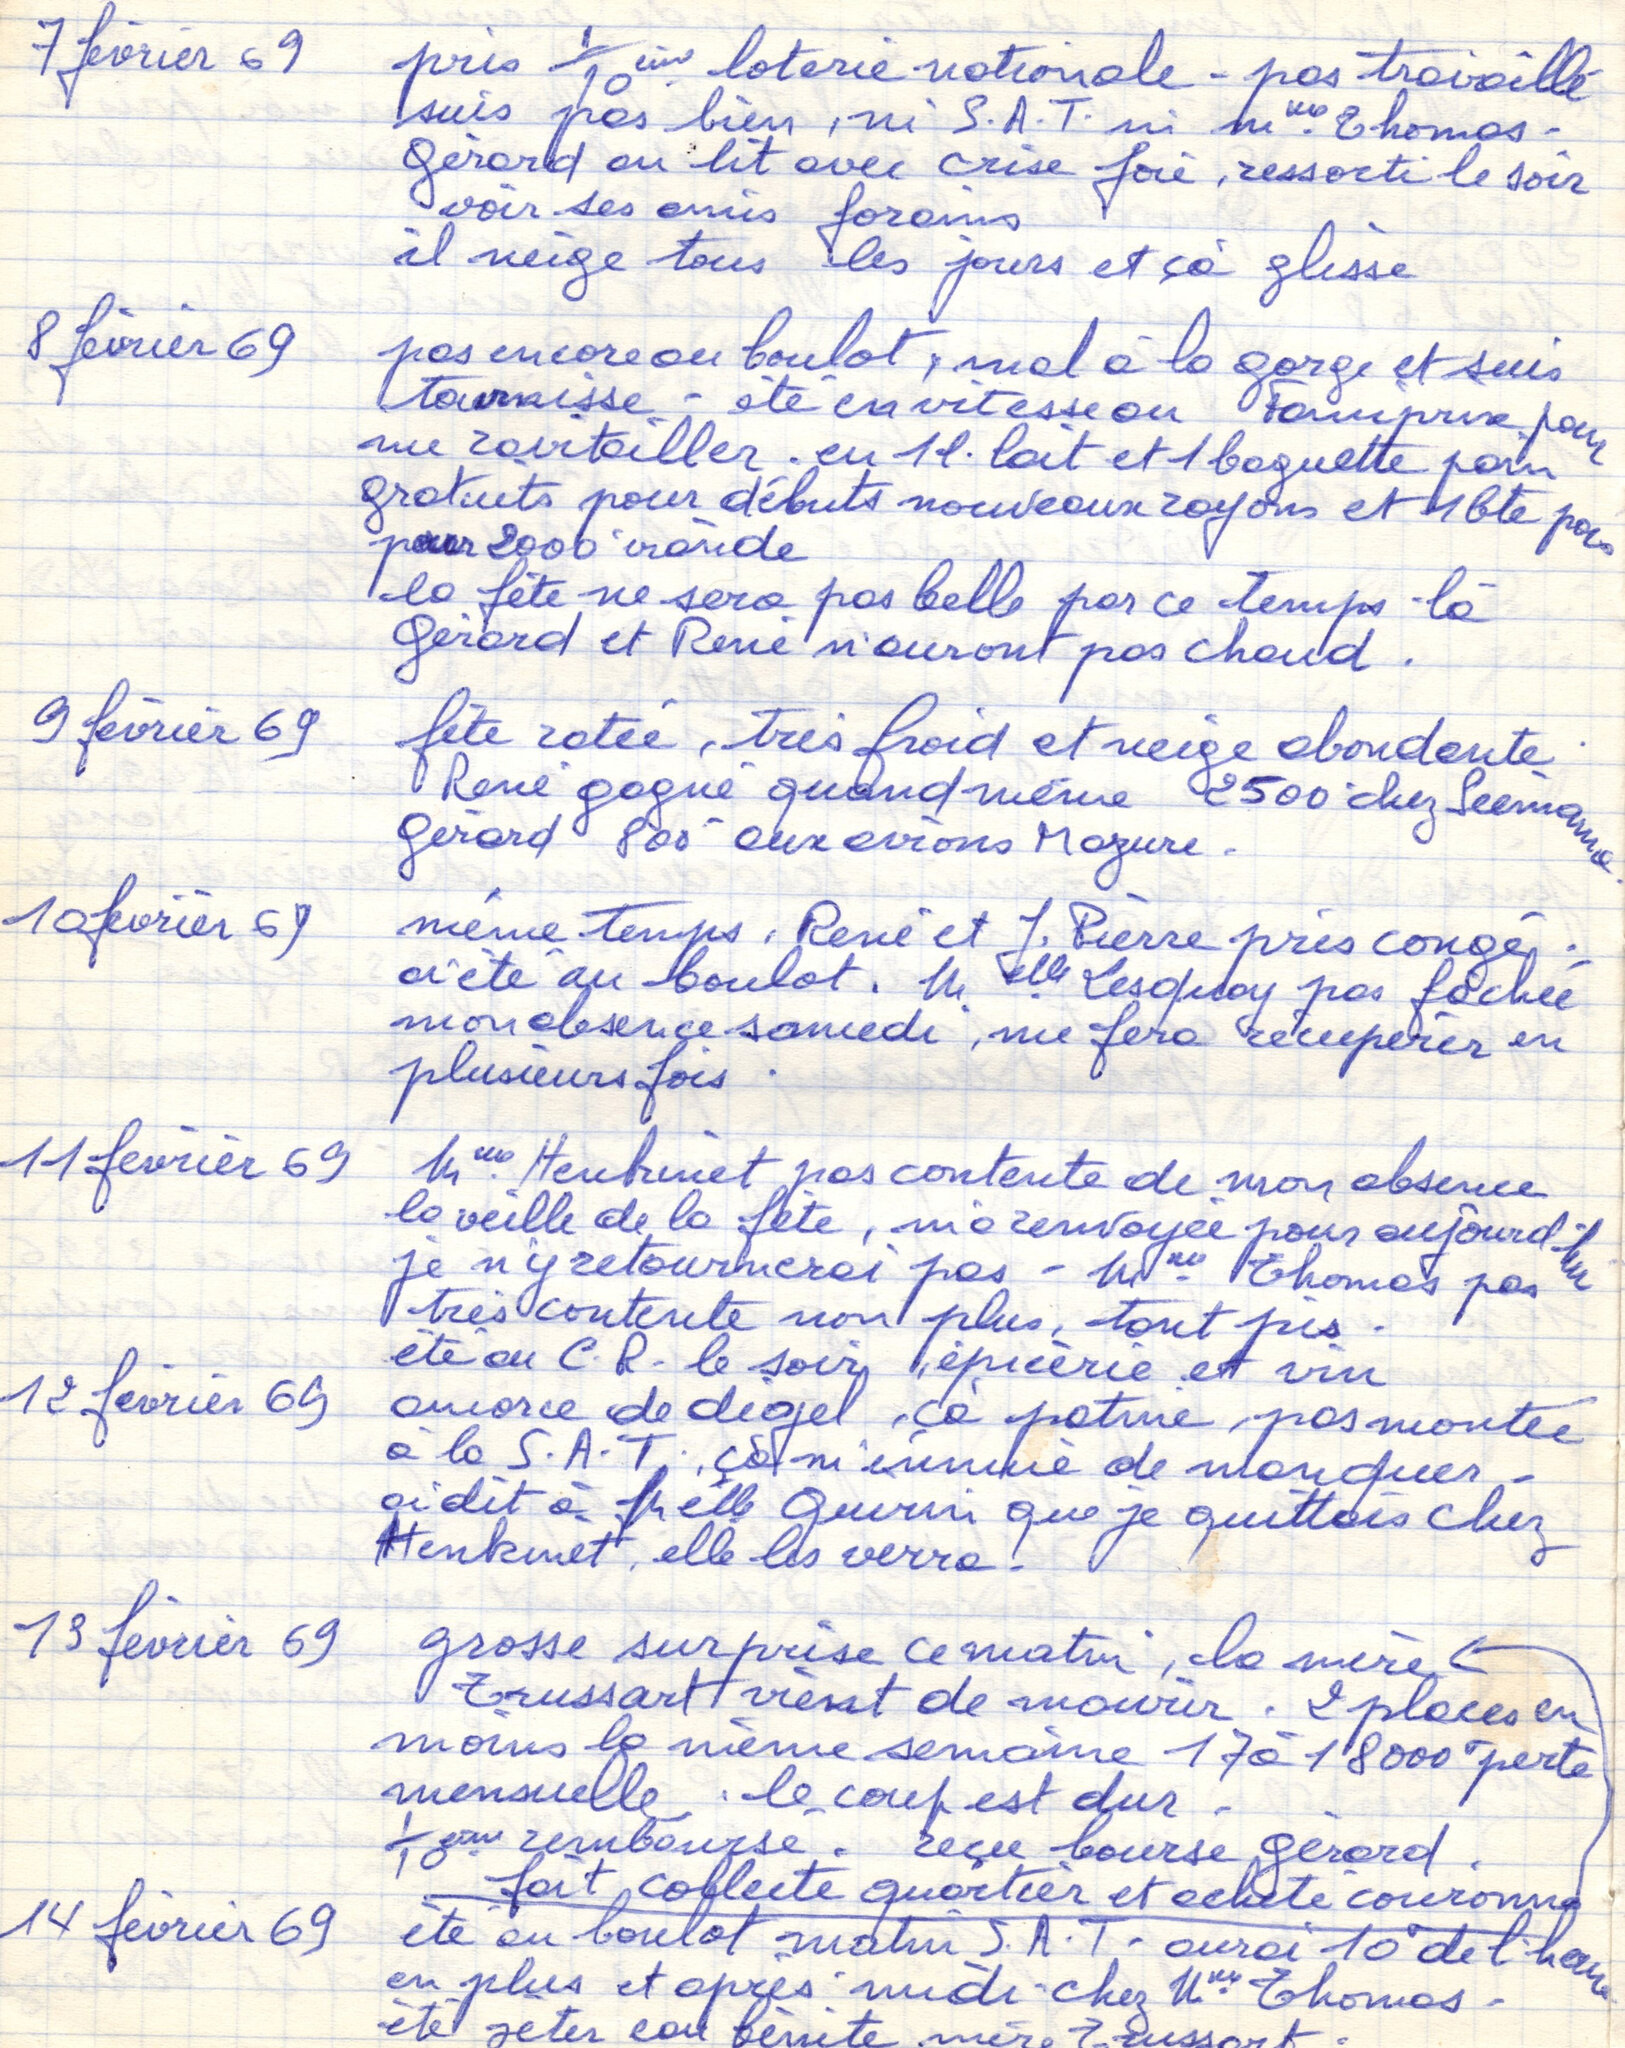 7 février 69 pris 1/10ème loterie nationale - pas travaillé
suis pas bien, ni S.A.T. ni Mme Thomas -
Gérard au lit avec crise foie, ressorti le soir
voir ses amis forains
il neige tous les jours et çà glisse
8 février 69 pas encore au boulot, mal à la gorge et suis
tournisse - été en vitesse au Famiprix pour
me ravitailler. en 1 l. lait et 1 baguette pain
gratuits pour débuts nouveaux rayons et 1 bte pois
pour 2000 viande
la fête ne sera pas belle par ce temps-là
Gérard et René n'auront pas chaud.
9 février 69 fête ratée, très froid et neige abondante.
René gagné quand même 2500 chez Seemanne.
Gérard 800 aux avions Mazure.
10 février 69 même temps, René et J. Pierre pris congé.
ai été au boulot. Melle Lesquoy pas fâchée
mon absence samedi, me fera récupérer en
plusieurs fois.
11 février 69 Mme Henkinet pas contente de mon absence
la veille de la fête, m'a renvoyée pour aujourd'hui
je n'y retournerai pas - Mme Thomas pas
très contente non plus, tant pis.
été au C.R. le soir, épicerie et vin
12 février 69 amorce de dégel, çà patine, pas montée
à la S.A.T., çà m'ennuie de manquer -
ai dit à Melle Guerin que je quittais chez
Henkinet, elle les verra.
13 février 69 grosse surprise ce matin, la mère
Trussart vient de mourir. 2 places en
moins la même semaine 17 à 18000 perte
mensuelle. le coup est dur.
1/10ème remboursé. reçu bourse Gérard.
fait collecte quartier et acheté couronne
14 février 69 été au boulot matin S.A.T. - aurai 10 de l'heure
en plus et après-midi chez Mme Thomas -
été jeter eau bénite mère Trussart.